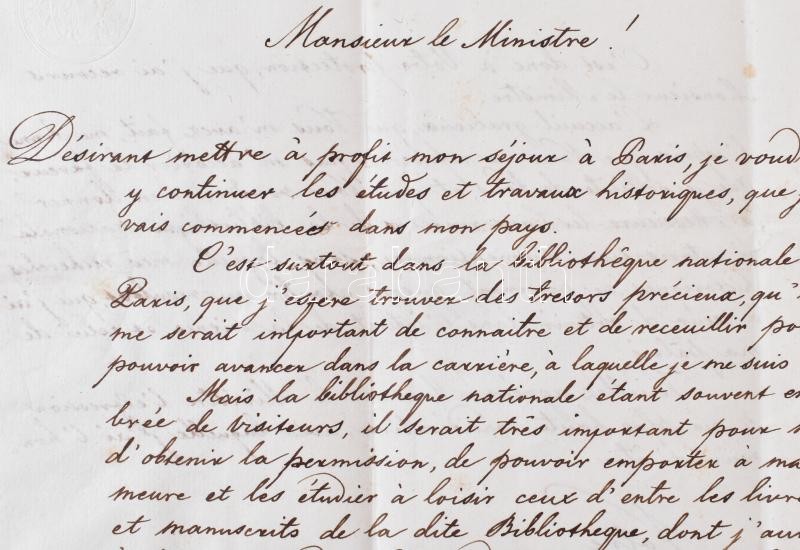 Monsieur le Ministre!
Désirant mettre à profit mon séjour à Paris, je voud
y continuer les études et travaux historiques, que j
vais commencées dans mon pays.
C'est surtout dans la bibliothêque nationale
Paris, que j'espere trouver des tresors précieux, qu'
me serait important de connaitre et de receuillir po
pouvoir avancer dans la carrière, à laquelle je me suis
Mais la bibliotheque nationale étant souvent en
brée de visiteurs, il serait très important pour
d'obtenir la permission, de pouvoir emporter à ma
meure et les étudier à loisir ceux d'entre les livr
et manuscrits de la dite Bibliotheque, dont j'au
darabanth